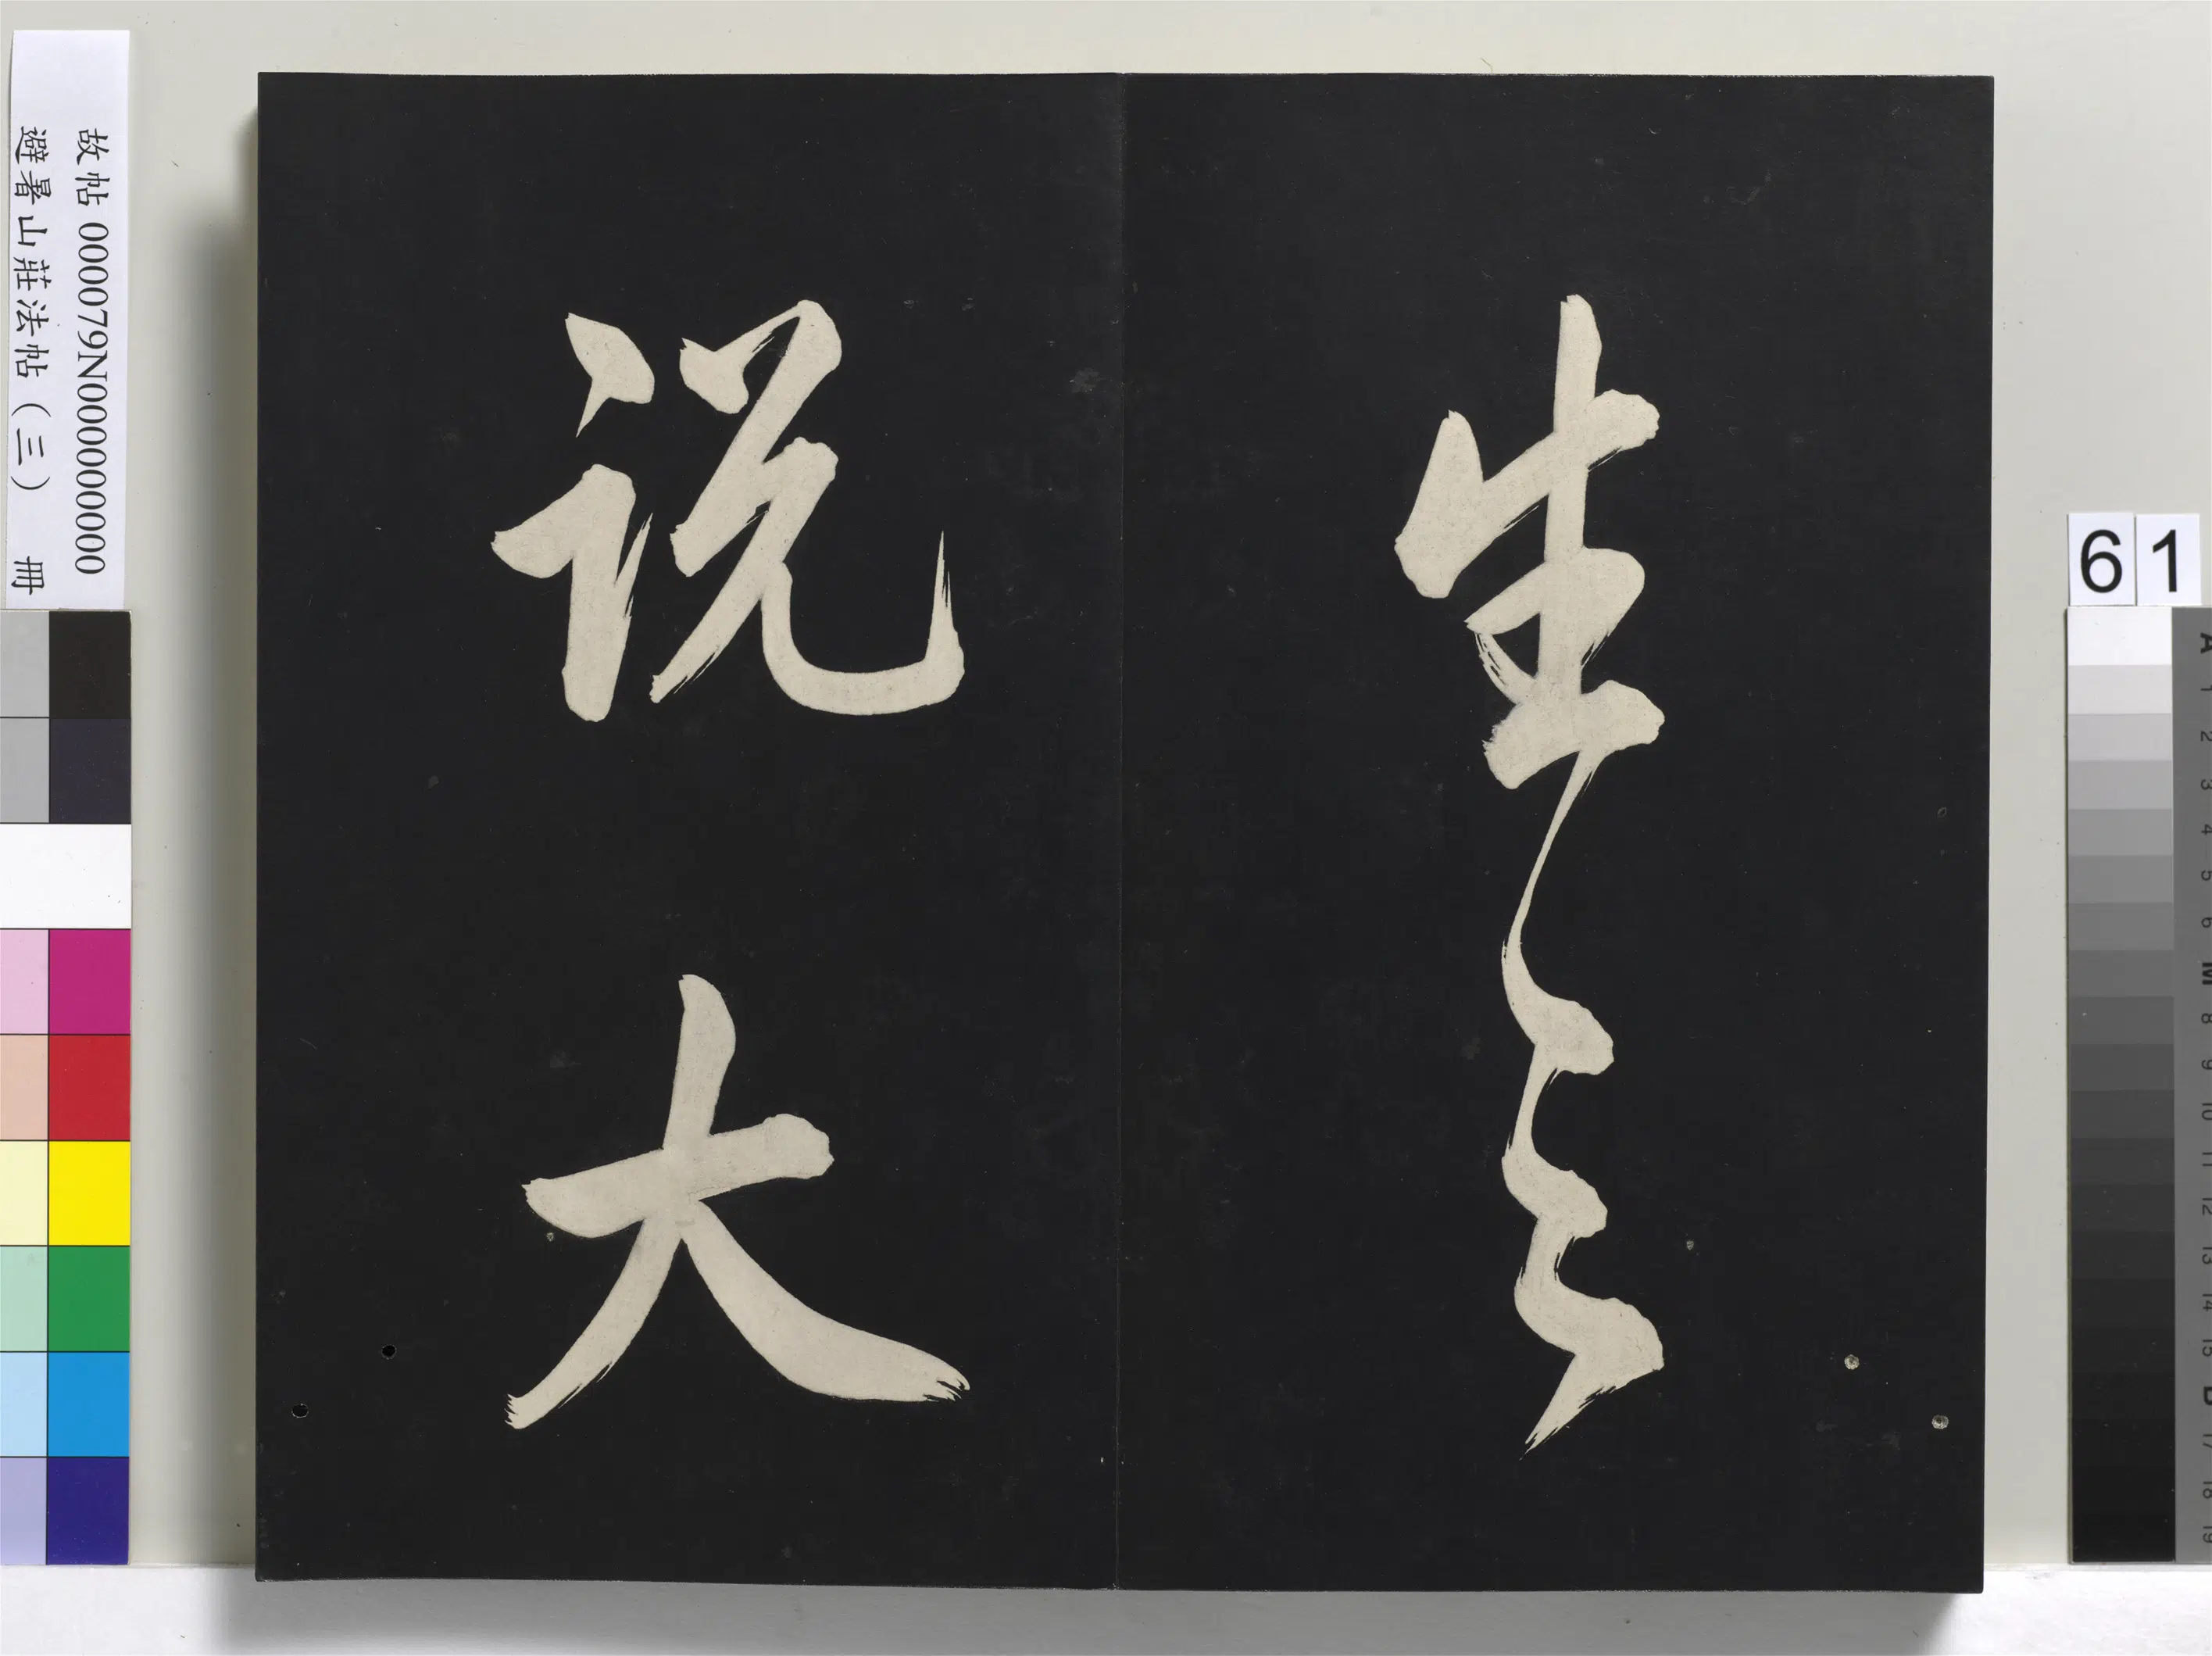 生
説大
故帖 000079N000000000
避暑山莊法帖(三) 冊
61
A
1
2
3
4
5
6
M
8
9
10
11
12
13
14
15
B
17
18
19